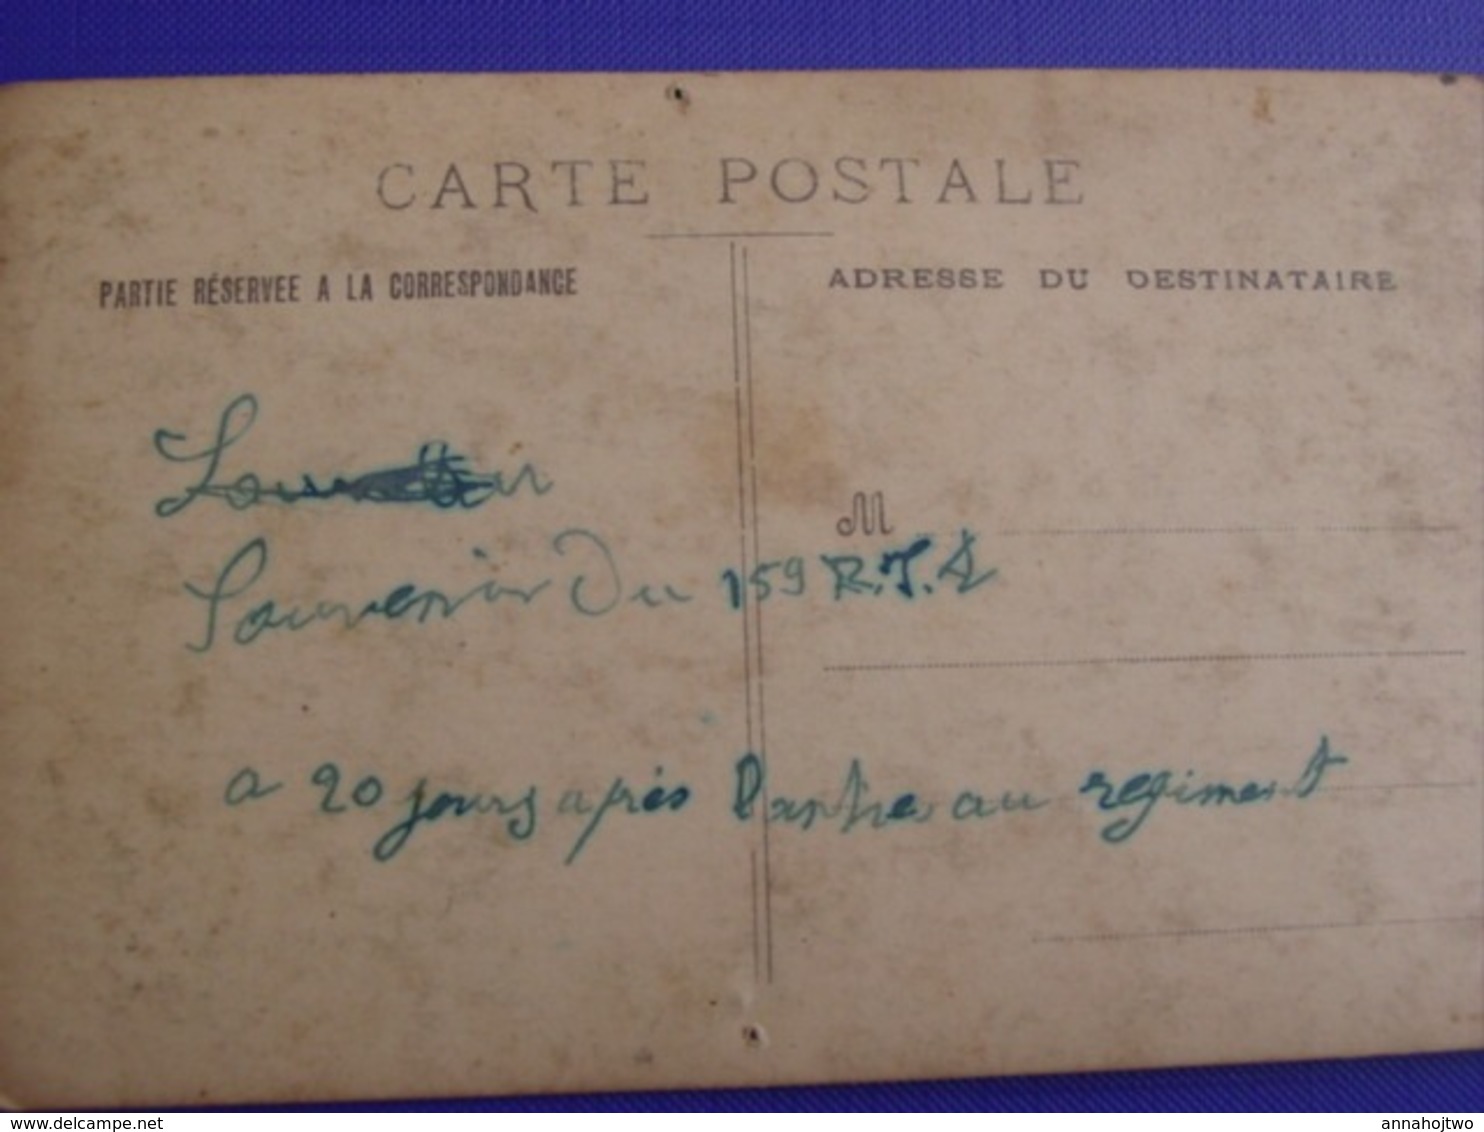 CARTE POSTALE
PARTIE RÉSERVEE A LA CORRESPONDANCE
ADRESSE DU DESTINATAIRE
M
Souvenir Du 159 R.I.A
a 20 jours après l'arrivée au regiment
annahojtwo